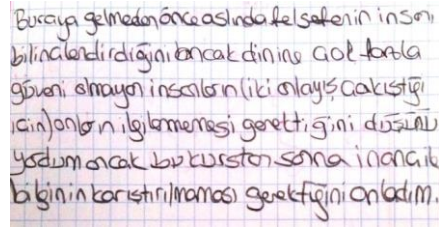 Buraya gelmeden önce aslında felsefenin insanı
bilinçlendirdiğini ancak dinine çok fazla
güveni olmayan insanların (iki anlayış çakıştığı
için) onların ilgilenmemesi gerektiğini düşünü
yodum ancak bu kurstan sonra inançık
bilginin karıştırılmaması gerektiğini anladım.